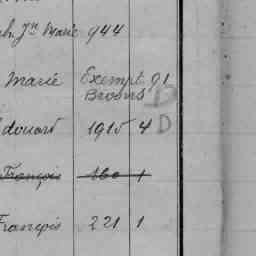 Jn Marie 944
Marie Exempt 91
D
douard 1915 4 D
François 160 1
François 221 1